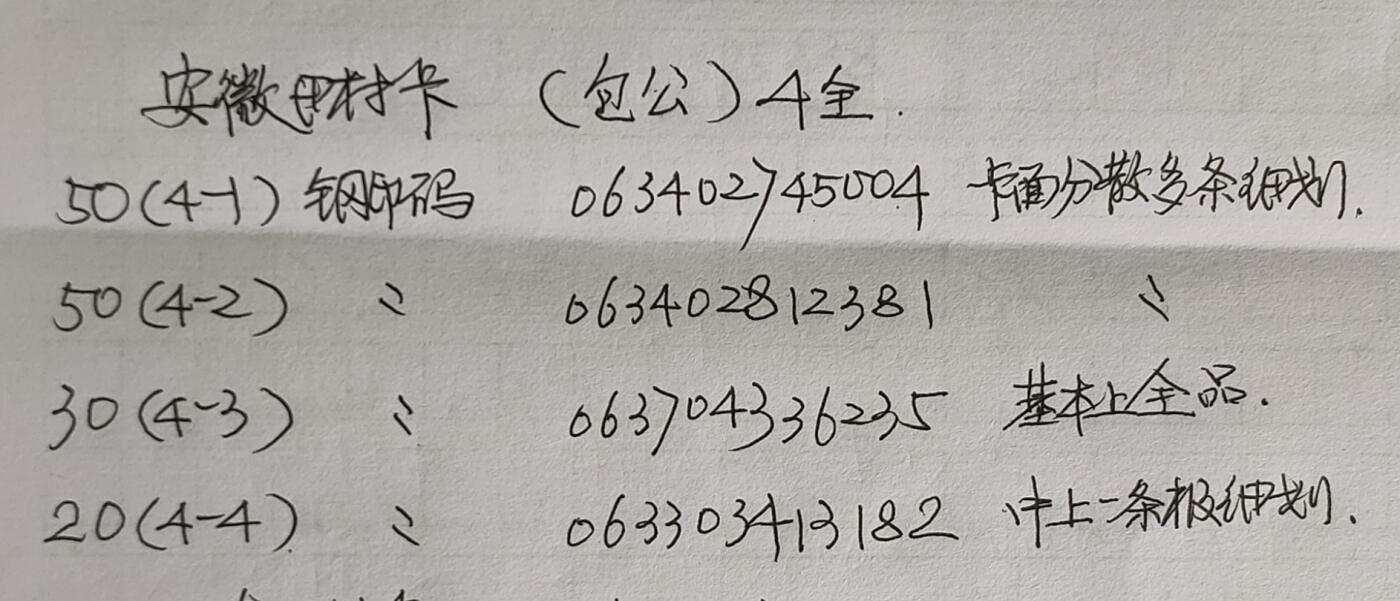 安徽田村卡 (包公) 4全.
50(4-1) 钢印码 063402745004 卡面分散多条细划.
50(4-2) 〃 063402812381 〃
30(4-3) 〃 063704336235 基本上全品.
20(4-4) 〃 063303413182 中上一条极细划.